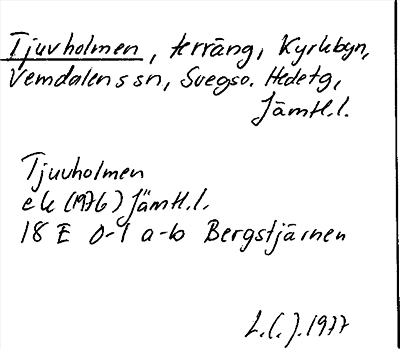 Tjuvholmen, terräng, Kyrkbyn,
Vemdalens sn, Svegso. Hedetg,
Jämtl.l.
Tjuvholmen
ek (1976) Jämtl.l.
18 E 0-1 a-b Bergstjärnen
L.C.J. 1977